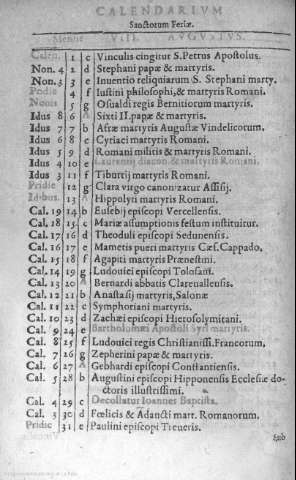 CALENDARIUM
Sanctorum Feriæ.
Mensis VIII. AUGUSTUS.
Calen. 1 c Vinculis cingitur S. Petrus Apostolus.
Non. 4 2 d Stephani papæ & martyris.
Non. 3 3 e Inuentio reliquiarum S. Stephani marty.
Pridie 4 f Iustini philosophi, & martyris Romani.
Nonis 5 g Osualdi regis Bernitiorum martyris.
Idus 8 6 A Sixti II. papæ & martyris.
Idus 7 7 b Afræ martyris Augustæ Vindelicorum.
Idus 6 8 c Cyriaci martyris Romani.
Idus 5 9 d Romani militis & martyris Romani.
Idus 4 10 e Laurentij diacon. & martyris Romani.
Idus 3 11 f Tiburtij martyris Romani.
Pridie 12 g Clara virgo canonizatur Assisij.
Idibus. 13 A Hippolyti martyris Romani.
Cal. 19 14 b Eusebij episcopi Vercellensis.
Cal. 18 15 c Mariæ assumptionis festum instituitur.
Cal. 17 16 d Theoduli episcopi Sedunensis.
Cal. 16 17 e Mametis pueri martyris Cæs. Cappado.
Cal. 15 18 f Agapiti martyris Prænestini.
Cal. 14 19 g Ludouici episcopi Tolosani.
Cal. 13 20 A Bernardi abbatis Clareuallensis.
Cal. 12 21 b Anastasij martyris, Salonæ
Cal. 11 22 c Symphoriani martyris.
Cal. 10 23 d Zachæi episcopi Hierosolymitani.
Cal. 9 24 e Bartholomæi Apostoli Syri martyris.
Cal. 8 25 f Ludouici regis Christianiss. Francorum,
Cal. 7 26 g Zepherini papæ & martyris.
Cal. 6 27 A Gebhardi episcopi Constantiensis.
Cal. 5 28 b Augustini episcopi Hipponensis Ecclesiæ do-
ctoris illustrissimi.
Cal. 4 29 c Decollatur Ioannes Baptista.
Cal. 3 30 d Fœlicis & Adaucti mart. Romanorum.
Pridie 31 e Paulini episcopi Treueris.